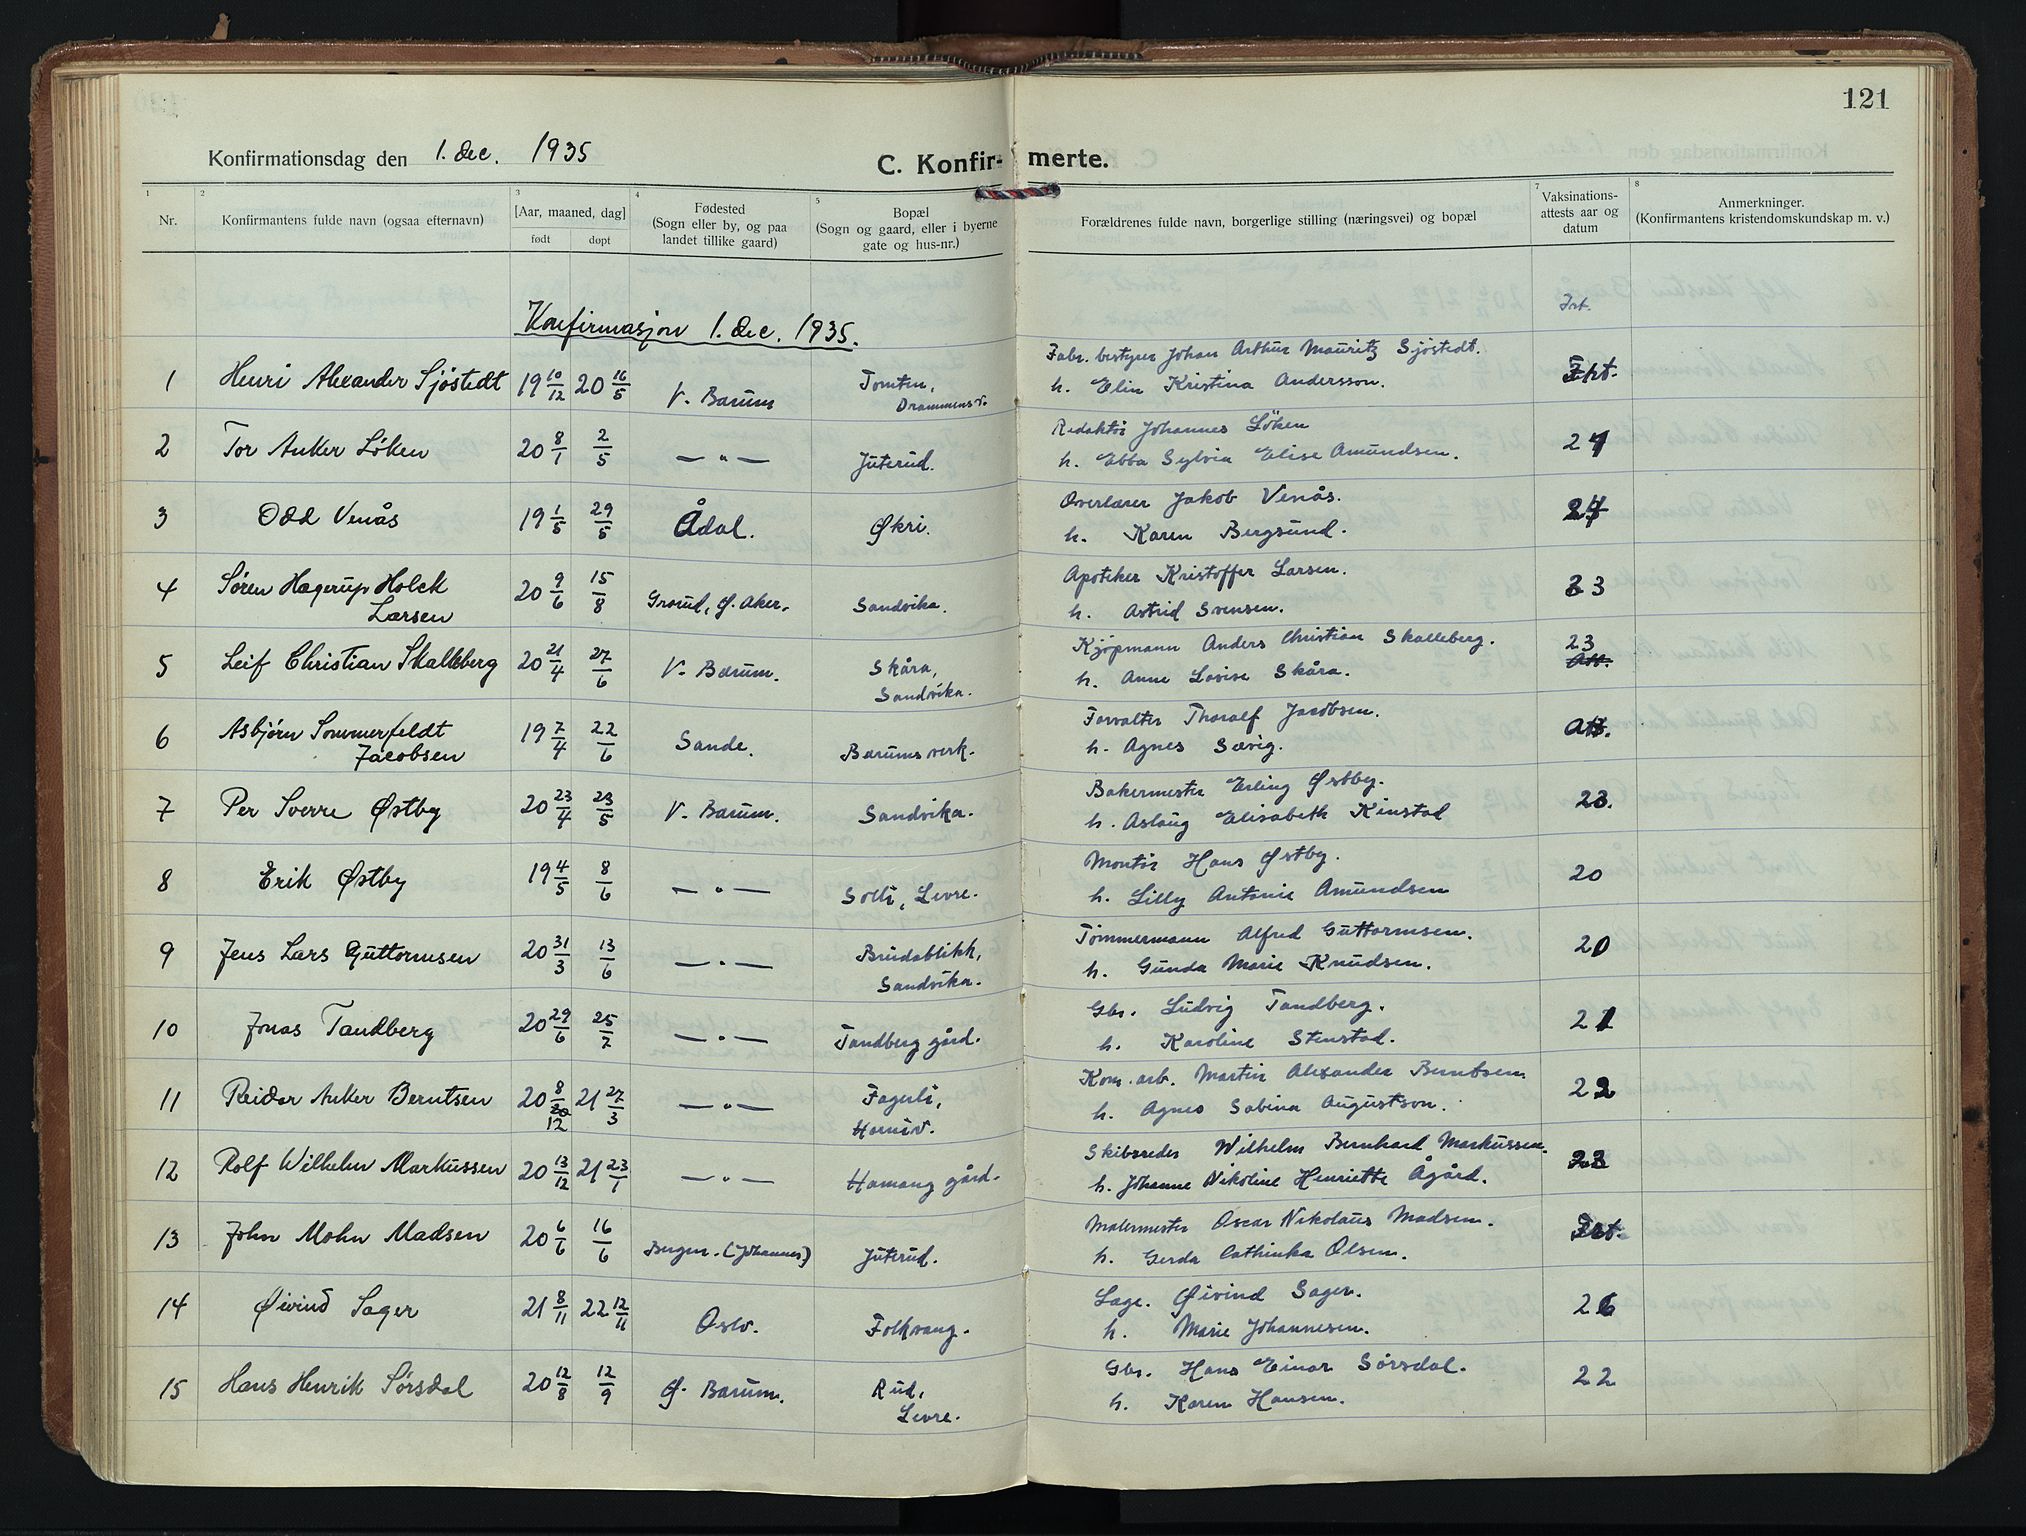 121
Konfirmationsdag den 1. dec. 1935
C. Konfir- merte.
1 2 3 4 5 7 8
Nr. Konfirmantens fulde navn (ogsaa efternavn) [Aar, maaned, dag] født døpt Fødested (Sogn eller by, og paa landet tillike gaard) Bopæl (Sogn og gaard, eller i byerne gate og hus-nr.) Forældrenes fulde navn, borgerlige stilling (næringsvei) og bopæl Vaksinations-attests aar og datum Anmerkninger. (Konfirmantens kristendomskundskap m. v.)
Konfirmasjon 1. dec. 1935.
1 Henri Alexander Sjöstedt 19 10/12 20 16/5 V. Bærum Tomten, Drammensv. Fabr. bestyrer Johan Arthur Mauritz Sjöstedt.
h. Elin Kristina Andersson.
2 Tor Anker Løken 20 8/1 2/5 — " — Juterud. Redaktör Johannes Löken 24
h. Ebba Sylvia Elise Amundsen.
3 Odd Venås 19 1/5 29/5 Ådal. Økri. Overlærer Jakob Venås. 24
h. Karen Bergsund.
4 Søren Hagerup Holck 20 9/6 15/8 Grorud, Ø. Aker. Sandvika. Apoteker Kristoffer Larsen. 23
Larsen h. Astrid Svensen.
5 Leif Christian Skalleberg 20 21/4 27/6 V. Bærum. Skåra, Kjøpmann Anders Christian Skalleberg. 23
Sandvika. h. Anne Lovise Skåra. Att.
6 Asbjørn Sommerfeldt 19 7/4 22/6 Sande. Bærums verk. Forvalter Thoralf Jacobsen. Att.
Jacobsen h. Agnes Sævig.
7 Per Sverre Østby 20 23/4 23/5 V. Bærum. Sandvika. Bakermester Erling Østby. 23.
h. Aslaug Elisabeth Kinstad
8 Erik Østby 19 4/5 8/6 — " — Solli, Levre. Montör Hans Østby. 20
h. Lilly Antonie Amundsen
9 Jens Lars Guttormsen 20 31/3 13/6 — " — Brudablikk, Tømmermann Alfred Guttormsen. 20
Sandvika. h. Gunda Marie Knudsen.
10 Jonas Tandberg 20 29/6 25/7 — " — Tandberg gård. Gbr. Ludvig Tandberg. 21
h. Karoline Stenstad.
11 Reidar Anker Berntsen 20 8/12 21 27/3 — " — Fagerli, Kom. arb. Martin Alexander Berntsen 22
h. Agnes Sabina Augustson.
12 Rolf Wilhelm Markussen 20 13/12 21 23/1 — " — Hamang gård. Skibsreder Wilhelm Bernhard Markussen. 23
h. Johanne Nikoline Henriette Ågård.
13 John Mohn Madsen 20 6/6 16/6 Bergen. (Johannes) Juterud. Malermester Oscar Nikolaus Madsen.
h. Gerda Cathinka Olsen.
14 Øivind Sager 21 8/11 22 12/11 Oslo. Folkvang. Lage. Øivind Sager. 26
h. Marie Johannesen.
15 Hans Henrik Sørsdal 20 12/8 12/9 Ø. Bærum. Rud, Gbr. Hans Einar Sørsdal. 22
Levre. h. Karen Hansen.